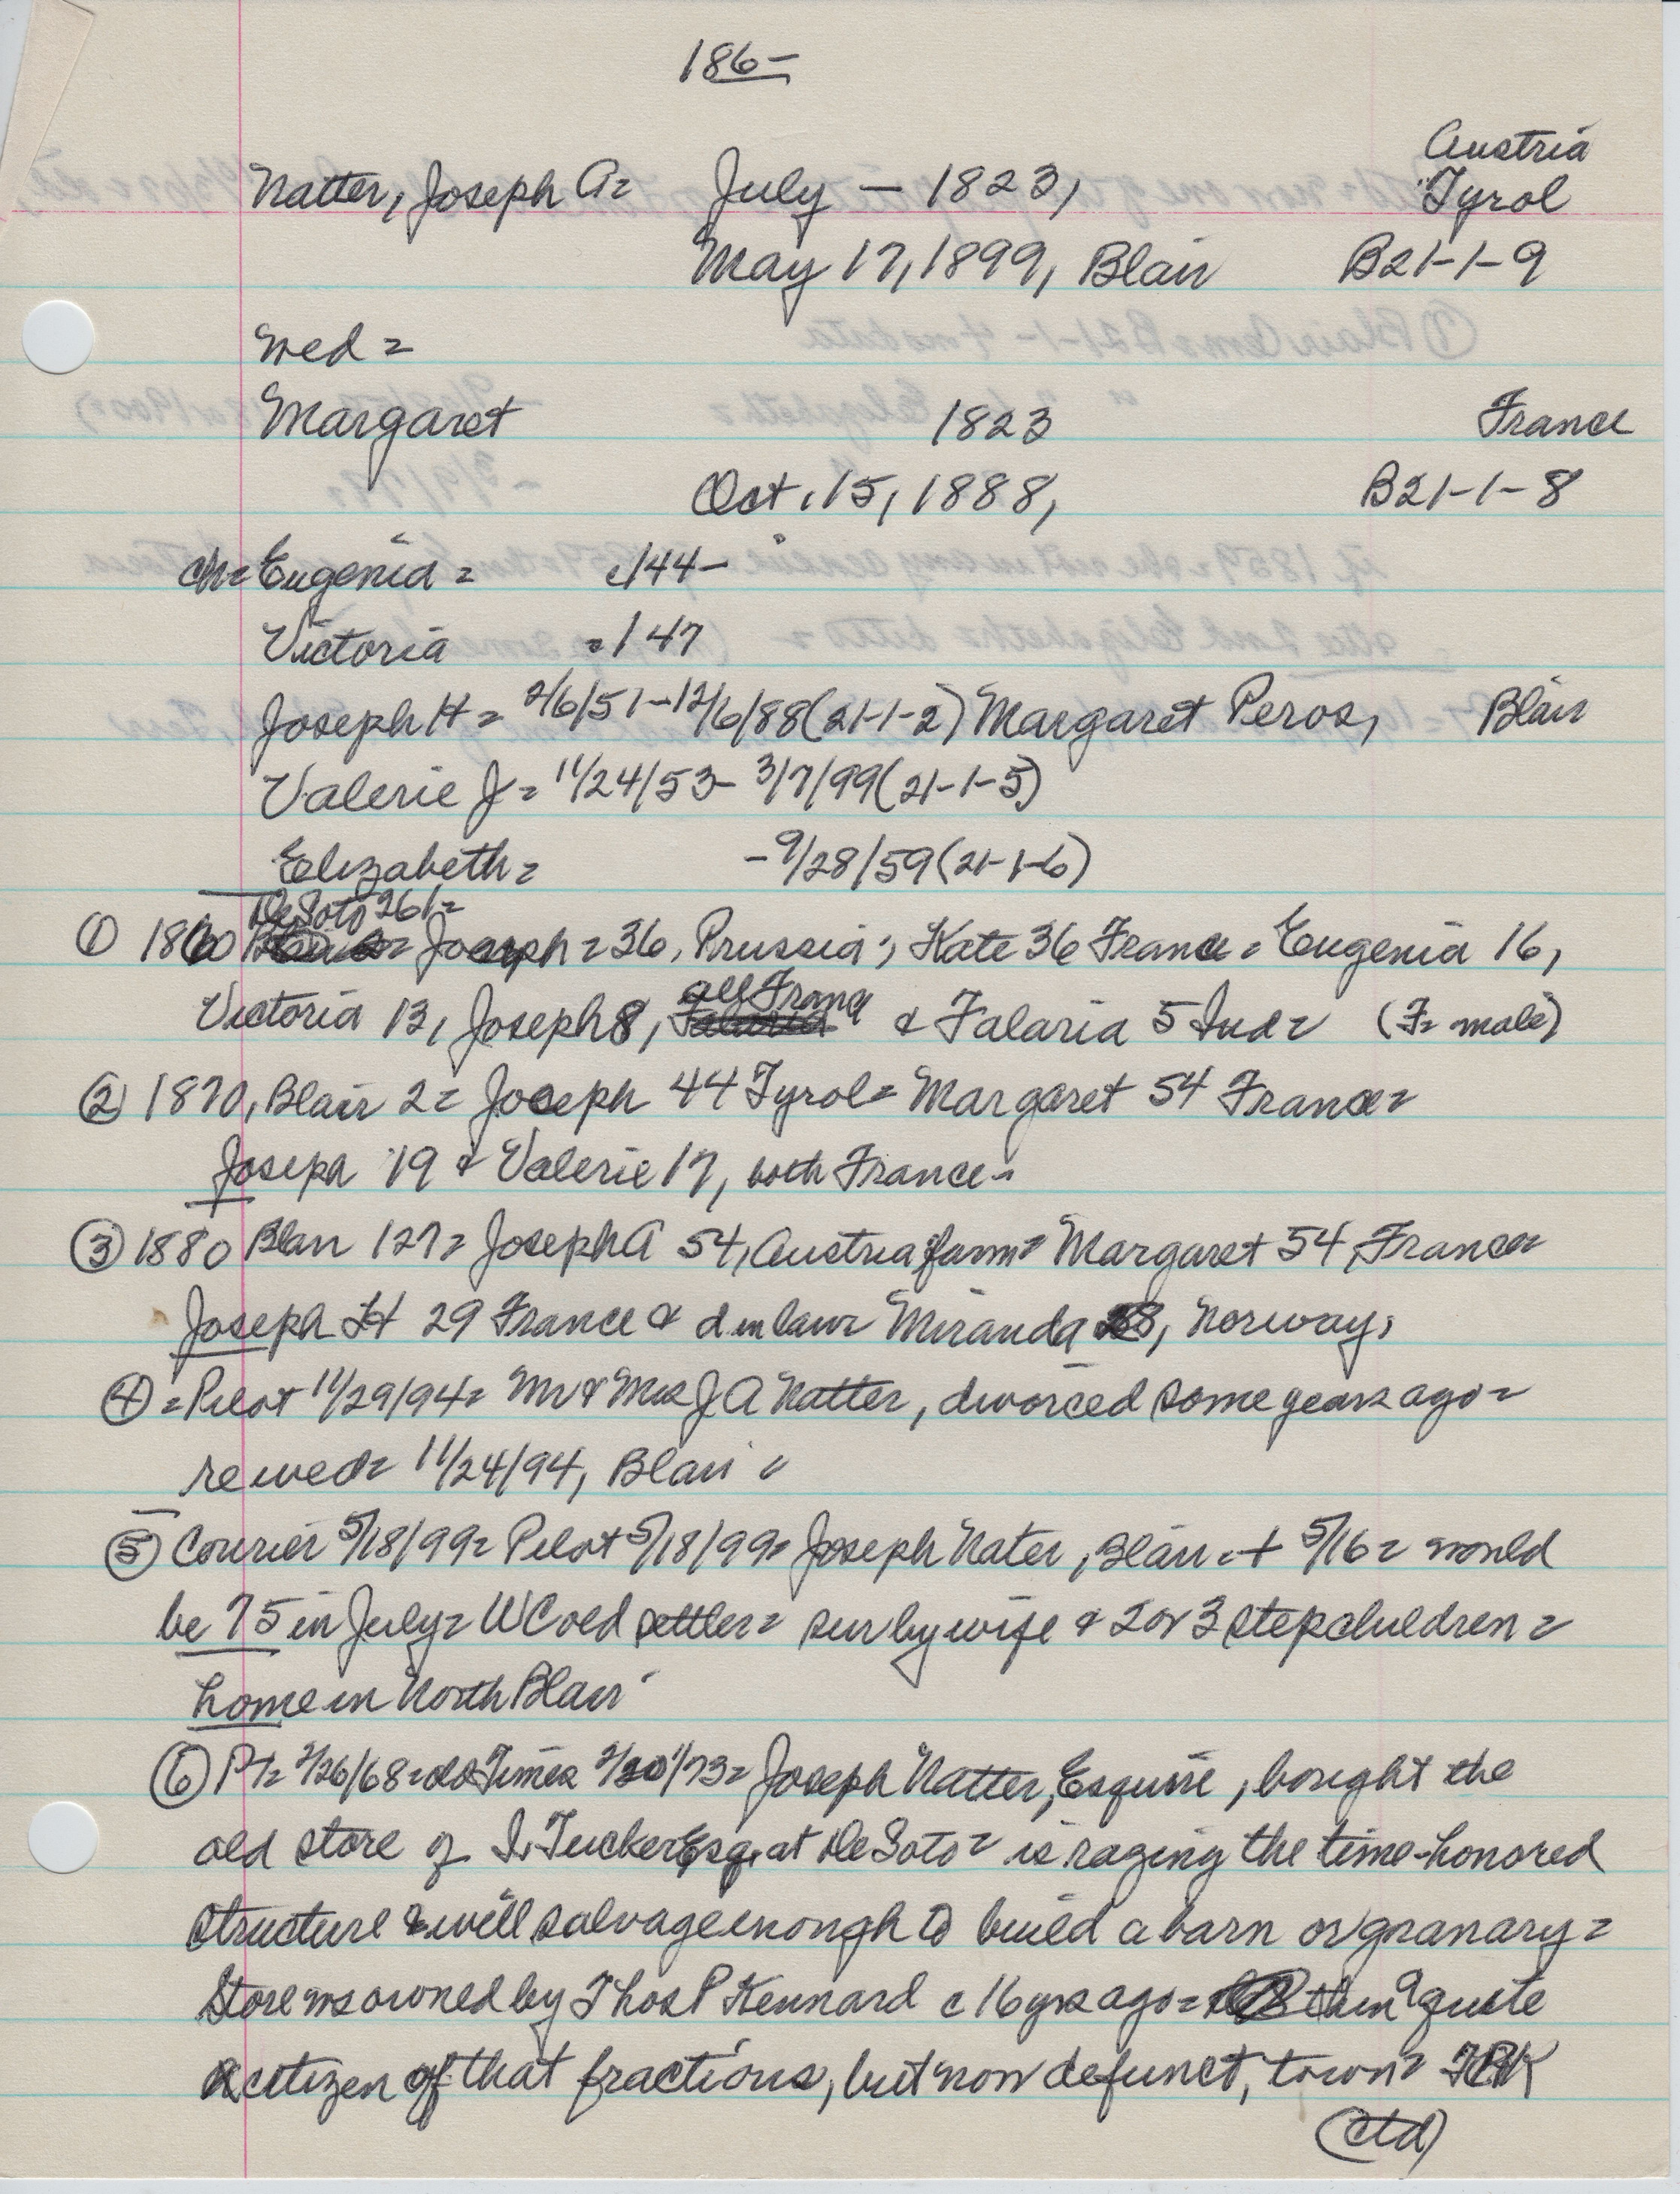 186-
Austria
Natter, Joseph A= July — 1823, Tyrol
May 17, 1899, Blair B21-1-9
wed =
Margaret 1823 France
Oct. 15, 1888, B21-1-8
ch= Eugenia = c144-
Victoria =147
Joseph H = 2/6/51-12/6/88(21-1-2) Margaret Peros, Blair
Valerie J= 11/24/53- 3/7/99(21-1-5)
Elizabeth= -9/28/59(21-1-6)
DeSoto 261=
① 1860 = Joseph=36, Prussia; Kate 36 France= Eugenia 16,
all France
Victoria 13, Joseph 8, & Falaria 5 Ind= (F= male)
② 1870, Blair 2= Joseph 44 Tyrol= Margaret 54 France=
Joseph 19 & Valerie 17, both France=
③ 1880 Blair 127= Joseph A 54, Austria farm= Margaret 54, France=
Joseph H 29 France & d in law= Miranda 28, Norway,
④ =Pilot 11/29/94= Mr & Mrs J A Natter, divorced some years ago=
rewed= 11/24/94, Blair =
⑤ Courier 5/18/99= Pilot 5/18/99= Joseph Nater, Blair, + 5/16= would
be 75 in July= WC old settler= sur by wife & 2 or 3 stepchildren=
home in North Blair
⑥ Pt= 2/26/68= Times /73= Joseph Natter, Esquire, bought the
old store of I. Tucker Esq. at DeSoto= is razing the time-honored
structure & will salvage enough to build a barn or granary=
Store ws owned by Thos P Kennard c 16 yrs ago= then quite
a citizen of that fractious, but now defunct, town= TPK
(ctd)